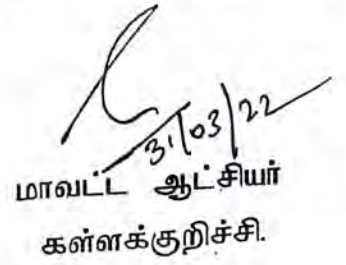 31/03/22
மாவட்ட ஆட்சியர்
கள்ளக்குறிச்சி.